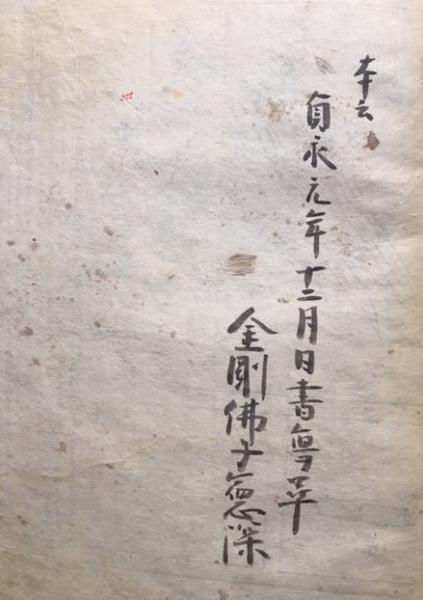 本云
貞永元年十二月日書寫畢
金剛佛子憲深